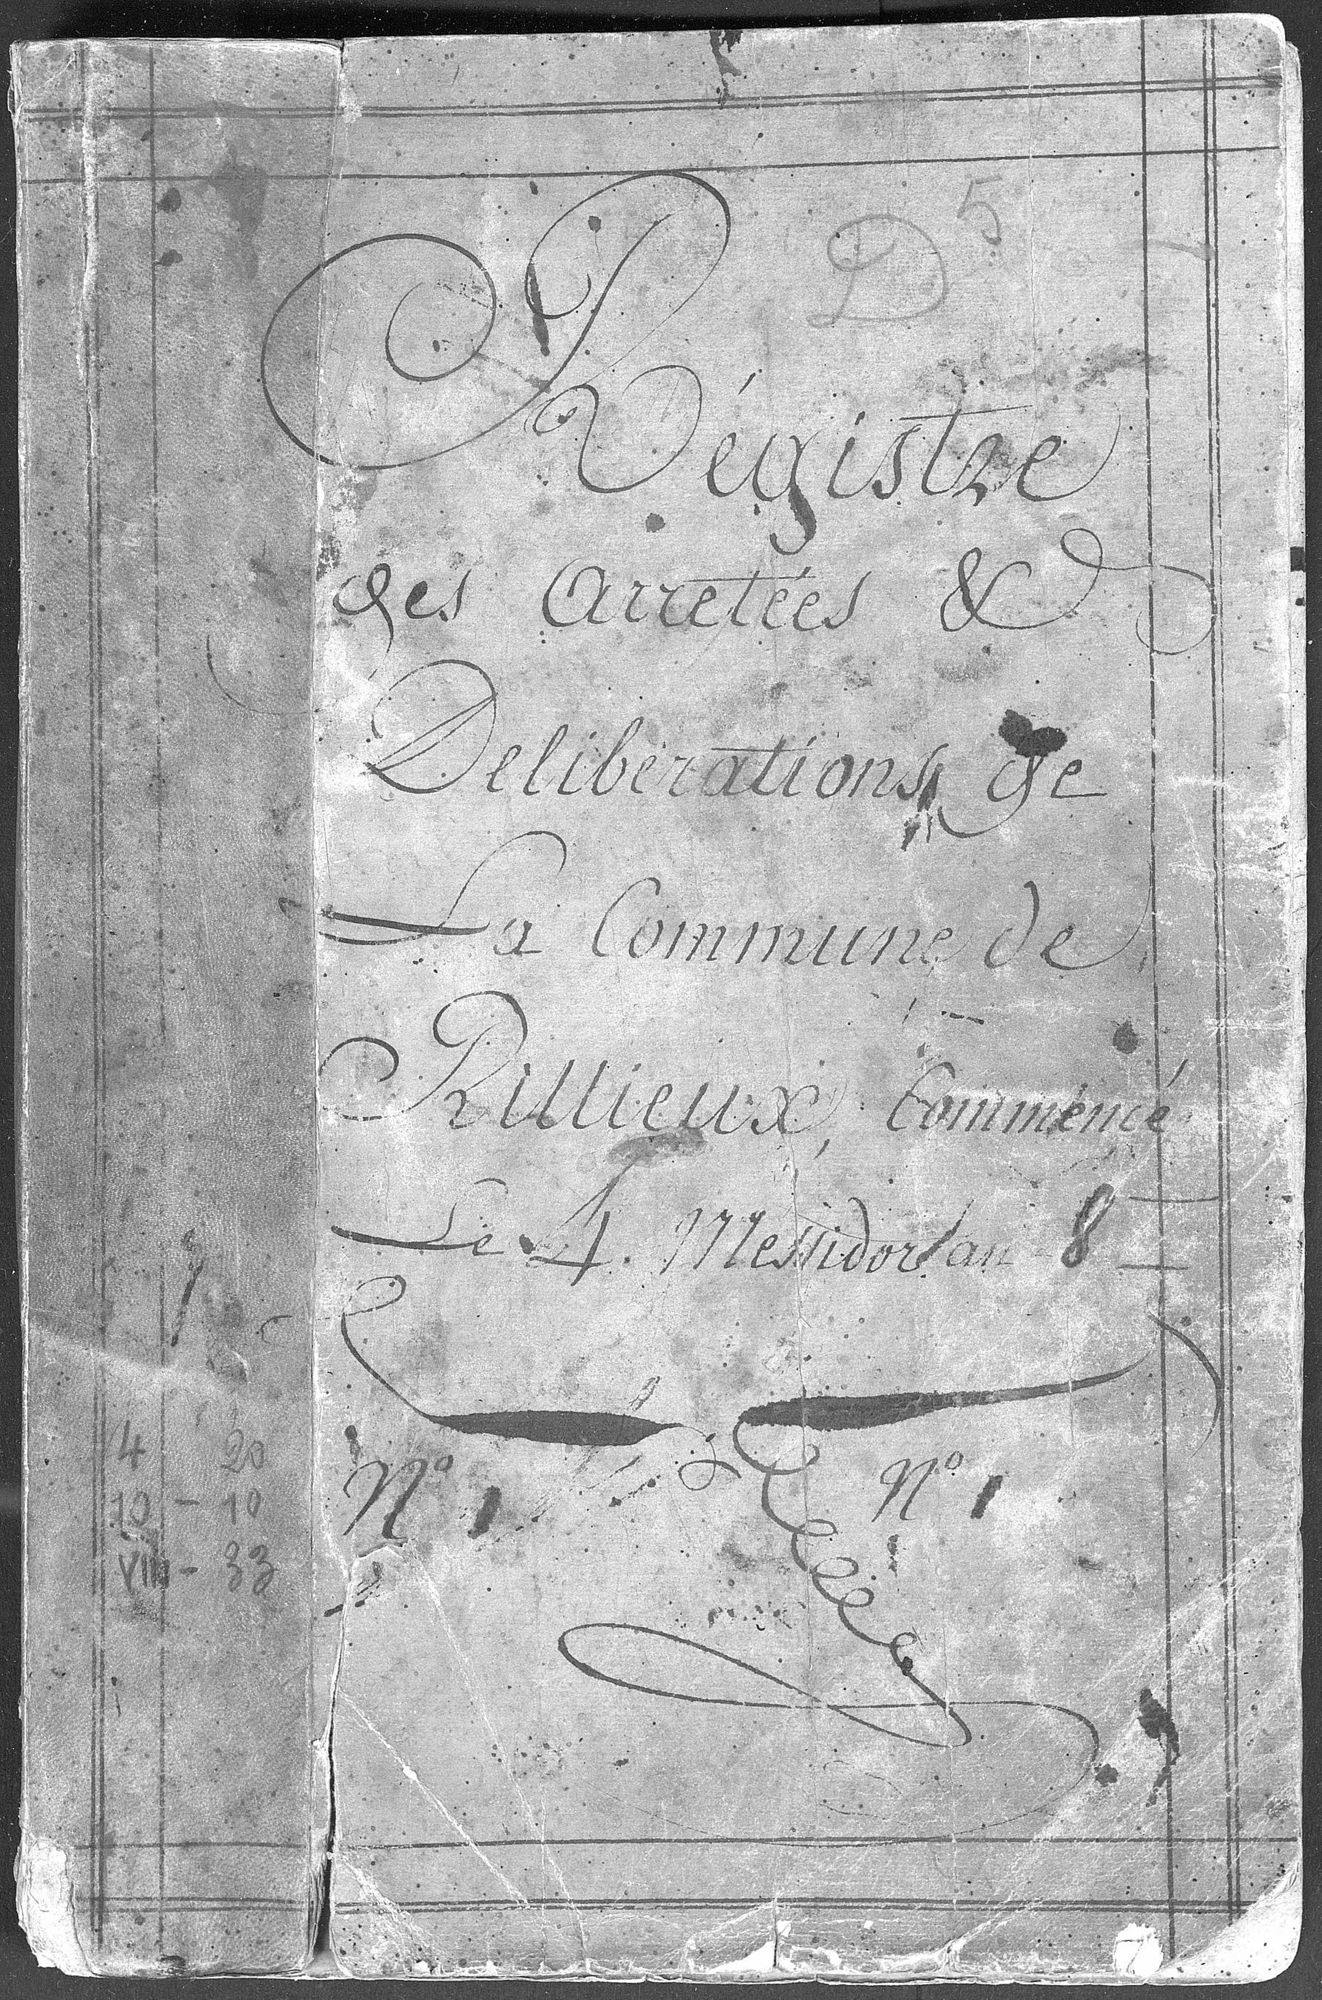 D 5
Régistre
des Arretées &
Delibérations de
La Commune de
Rillieux, Commencé
Le 4. Messidor an 8
N° 1 N° 1
4 20
10 - 10
VIII - 33